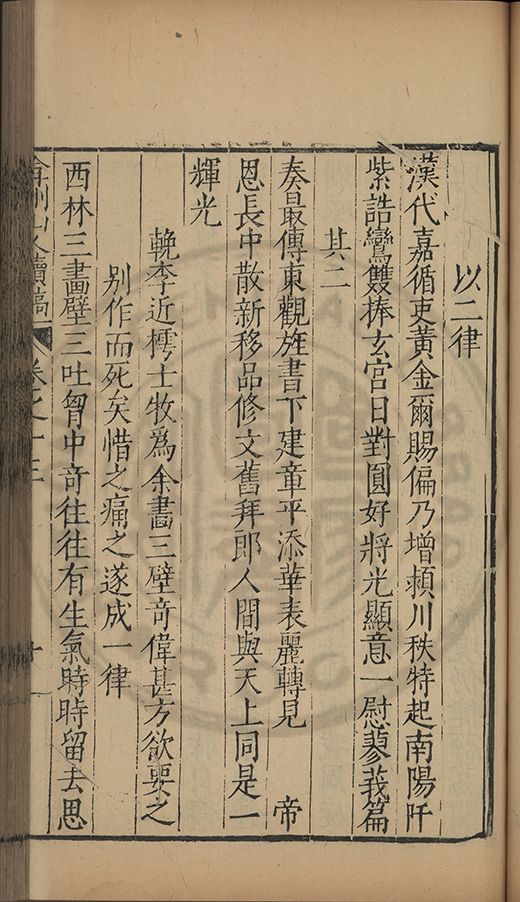 以二律
漢代嘉循吏黃金爾賜偏乃增潁川秩特起南陽阡
紫誥鸞雙捧玄宮日對圓好將光顯意一慰蓼莪篇
其二
奏最傳東觀旌書下建章平添華表麗轉見　帝
恩長中散新移品修文舊拜郎人間與天上同是一
輝光
輓李近樗士牧爲余畵三壁竒偉甚方欲要之
别作而死矣惜之痛之遂成一律
西林三畫壁三吐胷中竒往往有生氣時時留去思
弇州山人續稿 卷之十三 十